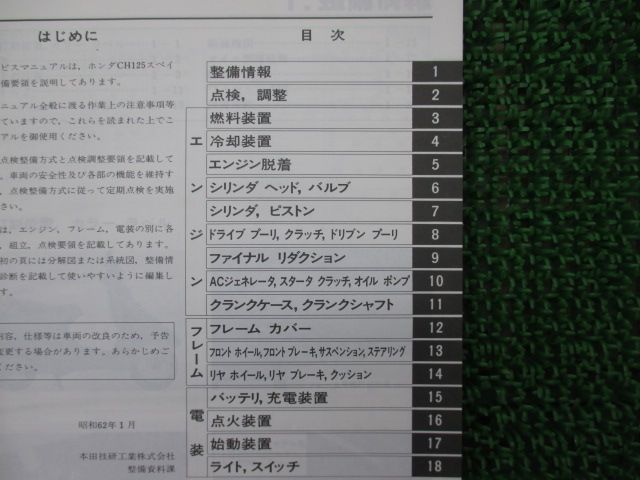 はじめに
ビスマニュアルは、ホンダCH125スペイ
備要領を説明してあります。
ニュアル全般に渡る作業上の注意事項等
ていますので、これらを読まれた上でこ
アルを御使用ください。
点検整備方式と点検調整要領を記載して
。車両の安全性及び各部の機能を維持す
、点検整備方式に従って定期点検を実施
さい。
は、エンジン、フレーム、電装の別に各
、組立、点検要領を記載してあります。
初の頁には分解図または系統図、整備情
診断を記載して使いやすいように編集し
ます。
内容、仕様等は車両の改良のため、予告
変更する場合があります。あらかじめご
ください。
昭和62年1月
本田技研工業株式会社
整備資料課
目次
整備情報 1
点検, 調整 2
エンジン
燃料装置 3
冷却装置 4
エンジン脱着 5
シリンダ ヘッド, バルブ 6
シリンダ, ピストン 7
ドライブ プーリ, クラッチ, ドリブン プーリ 8
ファイナル リダクション 9
ACジェネレータ, スタータ クラッチ, オイル ポンプ 10
クランクケース, クランクシャフト 11
フレーム
フレーム カバー 12
フロント ホイール, フロント ブレーキ, サスペンション, ステアリング 13
リヤ ホイール, リヤ ブレーキ, クッション 14
電装
バッテリ, 充電装置 15
点火装置 16
始動装置 17
ライト, スイッチ 18